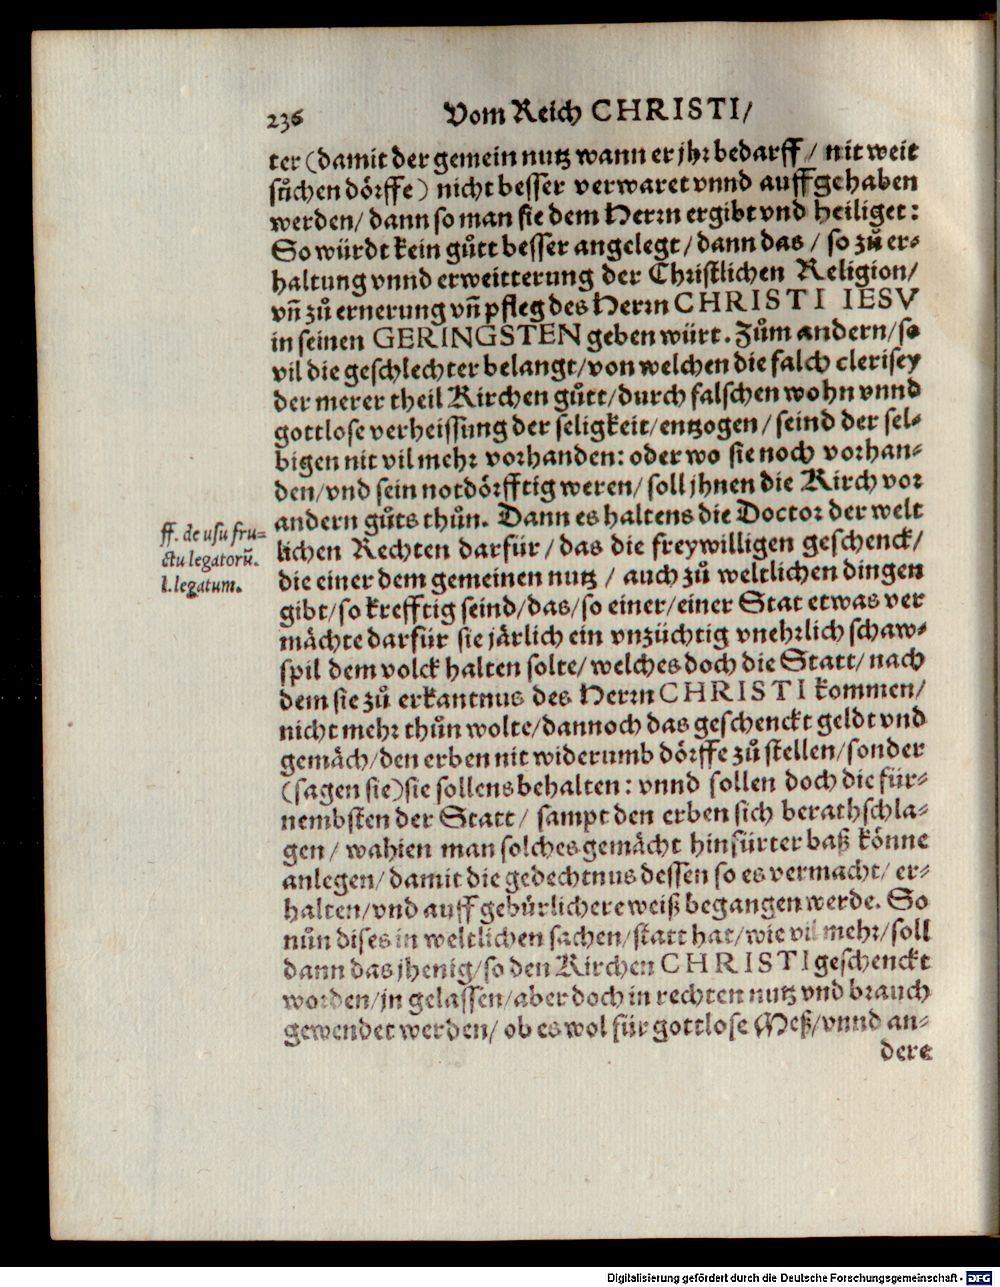 236 Vom Reich CHRISTI/
ter (damit der gemein nutz wann er jhr bedarff / nit weit
suͤchen doͤrffe) nicht besser verwaret vnnd auffgehaben
werden/ dann so man sie dem Herrn ergibt vnd heiliget:
So wuͤrdt kein guͤtt besser angelegt/ dann das / so zů er⸗
haltung vnnd erweitterung der Christlichen Religion/
vñ zů ernerung vñ pfleg des Herrn CHRISTI IESV
in seinen GERINGSTEN geben wuͤrt. Zům andern/ so
vil die geschlechter belangt/ von welchen die falsch clerisey
der merer theil Kirchen guͤtt/ durch falschen wohn vnnd
gottlose verheissung der seligkeit/ entzogen/ seind der sel⸗
bigen nit vil mehr vorhanden: oder wo sie noch vorhan⸗
den/ vnd sein notdoͤrfftig weren/ soll jhnen die Kirch vor
andern gůts thůn. Dann es haltens die Doctor der welt
lichen Rechten darfuͤr/ das die freywilligen geschenck/
die einer dem gemeinen nutz / auch zů weltlichen dingen
gibt/ so krefftig seind/ das/ so einer/ einer Stat etwas ver
maͤchte darfuͤr sie jaͤrlich ein vnzuͤchtig vnehrlich schaw⸗
spil dem volck halten solte/ welches doch die Statt/ nach
dem sie zů erkantnus des Herrn CHRISTI kommen/
nicht mehr thůn wolte/ dannoch das geschenckt geldt vnd
gemaͤch/ den erben nit widerumb doͤrffe zů stellen/ sonder
(sagen sie) sie sollens behalten: vnnd sollen doch die fuͤr⸗
nembsten der Statt/ sampt den erben sich berathschla⸗
gen/ wahien man solches gemaͤcht hinfuͤrter baß koͤnne
anlegen/ damit die gedechtnus dessen so es vermacht/ er⸗
halten/ vnd auff gebuͤrlichere weiß begangen werde. So
nůn dises in weltlichen sachen/ statt hat/ wie vil mehr/ soll
dann das jhenig/ so den Kirchen CHRISTI geschenckt
worden/ jn gelassen/ aber doch in rechten nutz vnd brauch
gewendet werden/ ob es wol fuͤr gottlose Meß/ vnnd an⸗
dere
ff. de usu fru⸗
ctu legatorũ.
l. legatum.
Digitalisierung gefördert durch die Deutsche Forschungsgemeinschaft - DFG